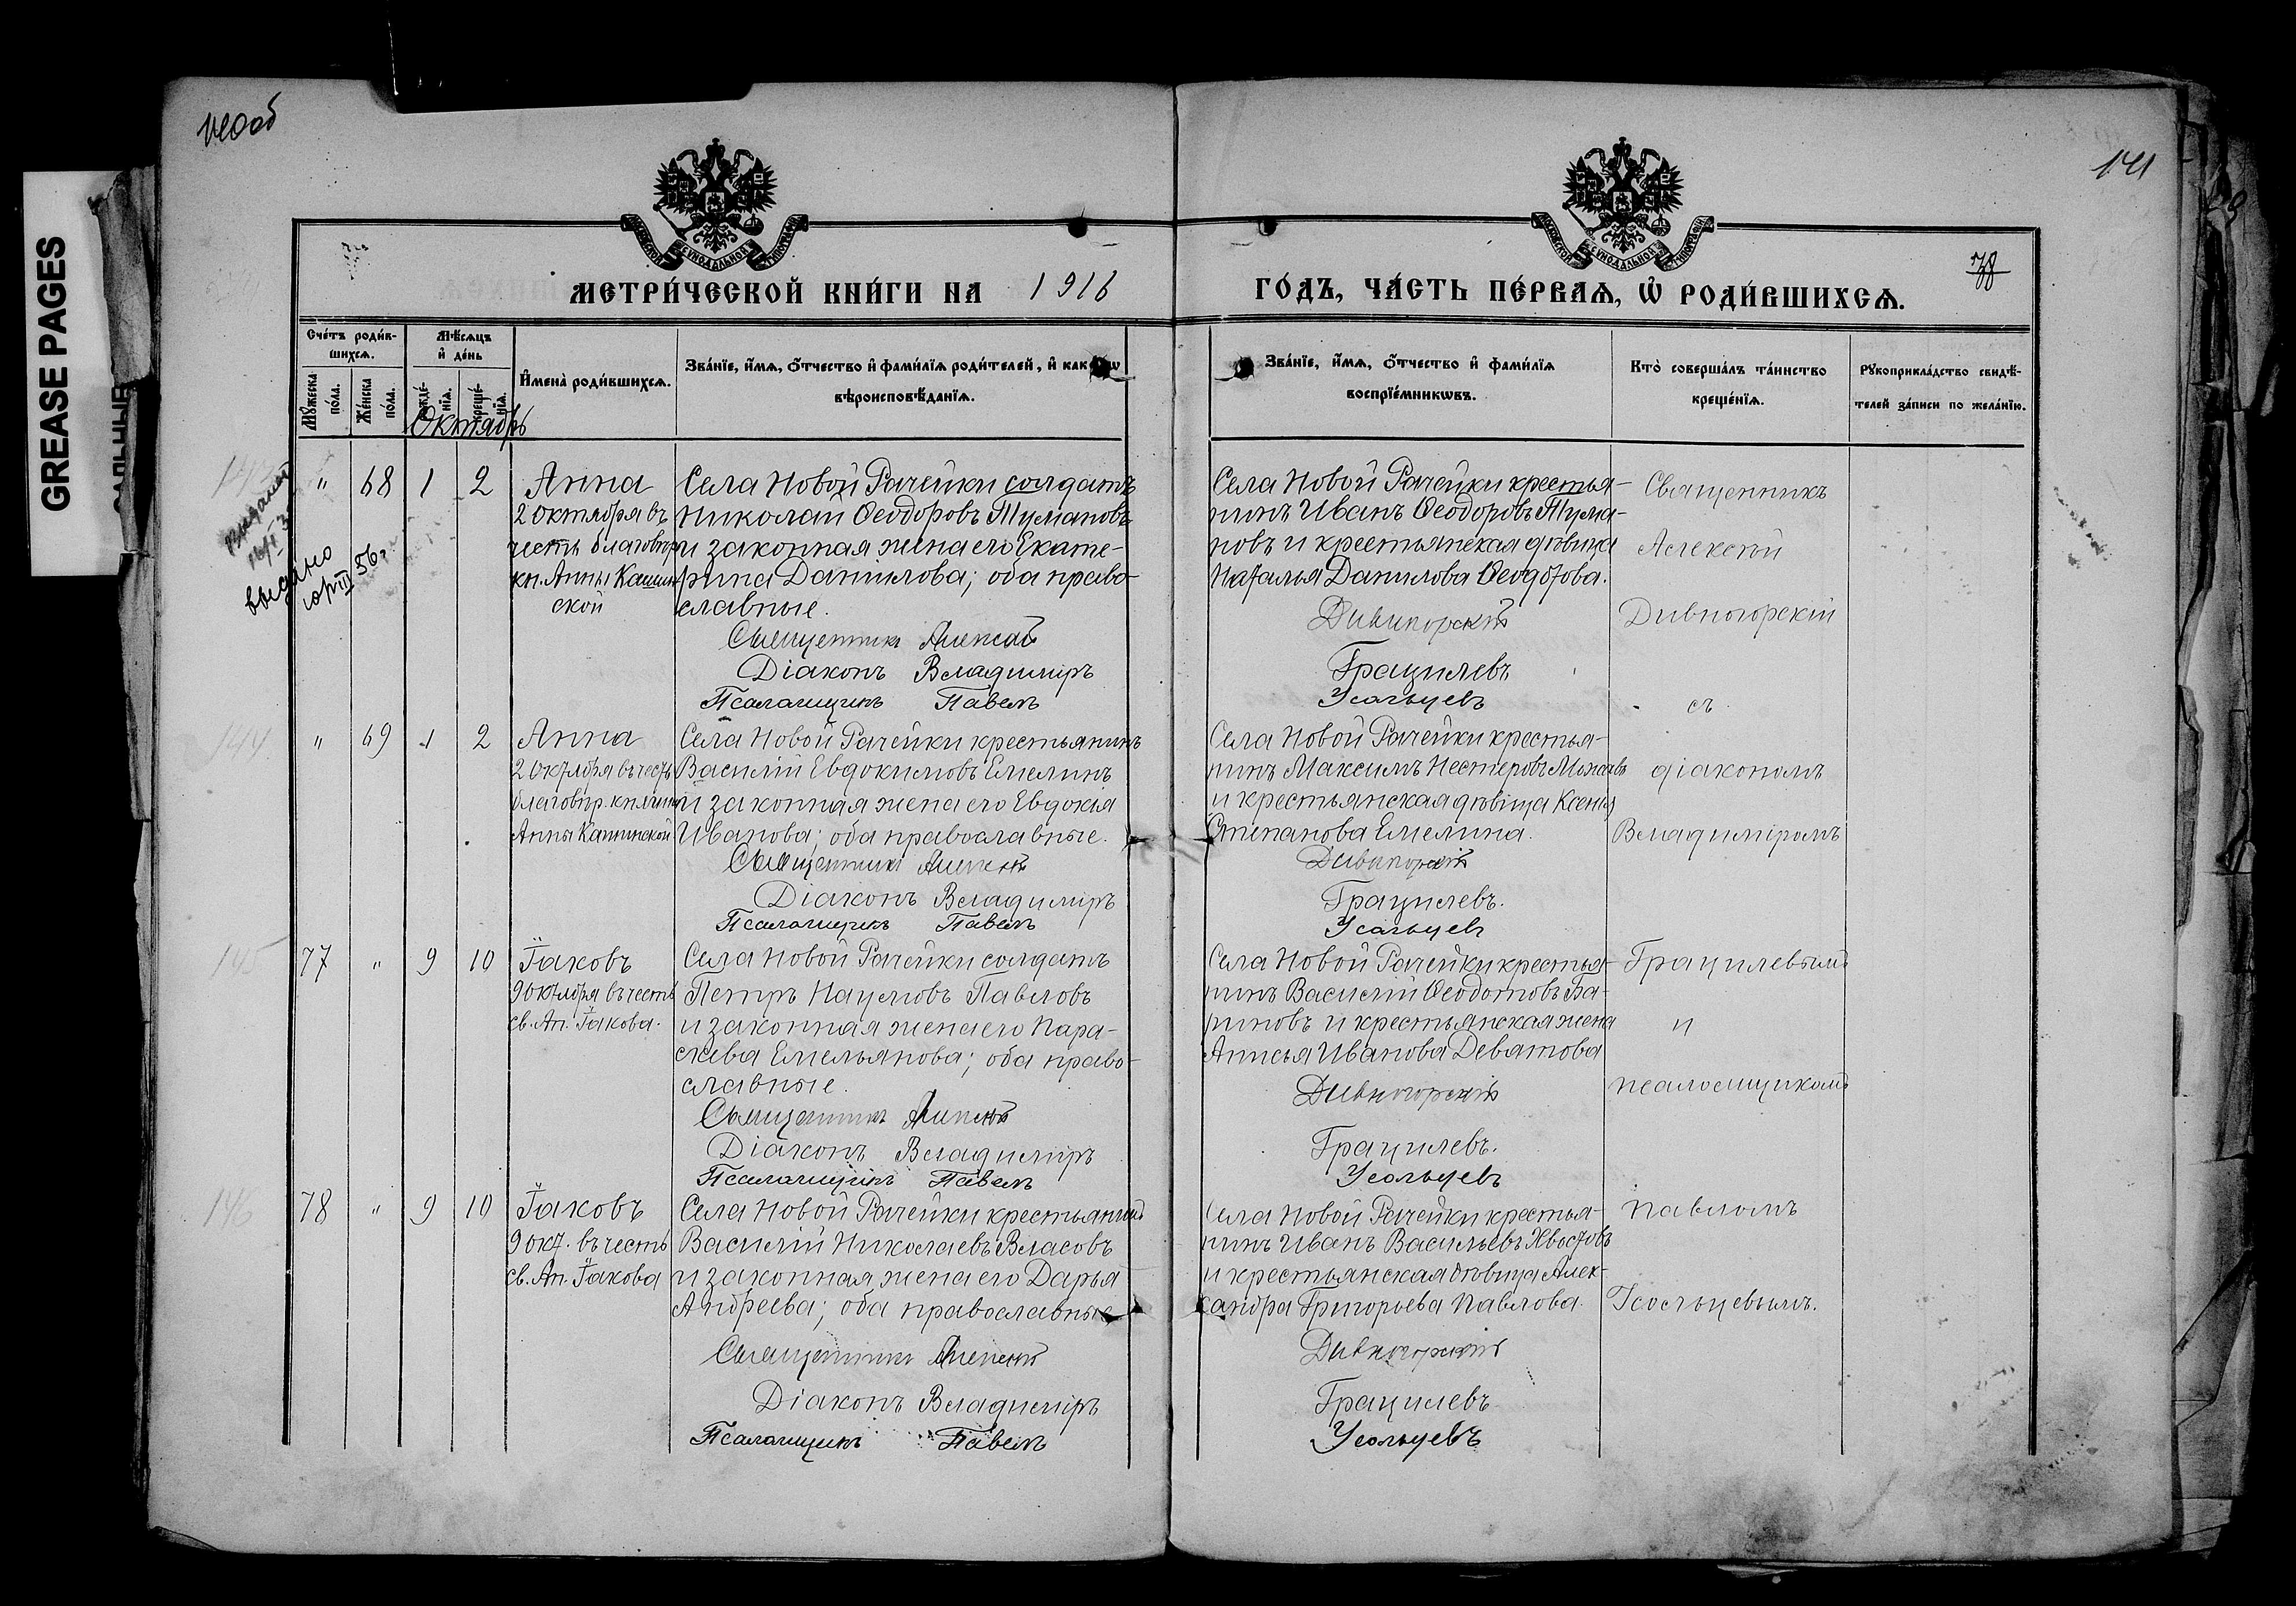 140об
141
GREASE PAGES
МЕТРИ́ЧЕСКОЙ КНИ́ГИ НА 1916
ГО́ДЪ, ЧА́СТЬ ПЕ́РВАЯ, Ѿ РОДИ́ВШИХСЯ.
78
Сче́тъ роди́в-
шихся.
Мѣ́сяцъ
и҆ де́нь
Мꙋ́жеска
по́ла.
Же́нска
по́ла.
рожде́-
нїѧ.
креще́-
нїѧ.
И҆мена̀ роди́вшихсѧ.
Зва́нїе, и҆́мѧ, ѻ҆́тчество и҆ фами́лїѧ роди́телей, и҆ как
вѣроисповѣ́данїѧ.
Зва́нїе, и҆́мѧ, ѻ҆́тчество и҆ фами́лїѧ
воспрїе́мникѡвъ.
Кто̀ соверша́лъ та́инство
креще́нїѧ.
Рꙋкоприкла́дство свидѣ́-
телей за́писи по жела́нїю.
Октябрь
143
выдано
юрIII 56г
" 68 1 2
Анна
2 октября въ
честь благовѣр
кн. Анны Кашин
ской
Села Новой Рачейки солдатъ
Николай Ѳеодоровъ Тумановъ
и законная жена его Екате-
рина Данилова; оба право-
славные.
Священникъ Алексѣй
Діаконъ Владиміръ
Псаломщикъ Павелъ
Села Новой Рачейки крестья-
нинъ Иванъ Ѳеодоровъ Тума-
новъ и крестьянская дѣвица
Наталья Данилова Ѳеодотова.
Дивногорскій
Грацилевъ
Усольцевъ
Священникъ
Алексѣй
Дивногорскій
съ
144
" 69 1 2
Анна
2 октября въ честь
благовѣр. княгини
Анны Кашинской
Села Новой Рачейки крестьянинъ
Василій Евдокимовъ Емелинъ
и законная жена его Евдокія
Иванова; оба православные.
Священникъ Алексѣй
Діаконъ Владиміръ
Псаломщикъ Павелъ
Села Новой Рачейки крестья-
нинъ Максимъ Нестеровъ
и крестьянская дѣвица Ксенія
Степанова Емелина.
Дивногорскій
Грацилевъ.
Усольцевъ
діакономъ
Владиміромъ
145
77 " 9 10
Іаковъ
9 октября въ честь
св. Ап. Іакова.
Села Новой Рачейки солдатъ
Петръ Наумовъ Павловъ
и законная жена его Пара-
скева Емельянова; оба право-
славные.
Священникъ Алексѣй
Діаконъ Владиміръ
Псаломщикъ Павелъ
Села Новой Рачейки крестья-
нинъ Василій Ѳеодотовъ Ба-
риновъ и крестьянская жена
Анисья Иванова Девятова
Дивногорскій
Грацилевъ.
Усольцевъ
Грацилевымъ
и
псаломщикомъ
146
78 " 9 10
Іаковъ
9 окт. въ честь
св. Ап. Іакова
Села Новой Рачейки крестьянинъ
Василій Николаевъ Власовъ
и законная жена его Дарья
Андреева; оба православные
Священникъ Алексѣй
Діаконъ Владиміръ
Псаломщикъ Павелъ
Села Новой Рачейки крестья-
нинъ Иванъ Васильевъ Хвостовъ
и крестьянская дѣвица Алек-
сандра Григорьева Павлова.
Дивногорскій
Грацилевъ
Усольцевъ
Павломъ
Усольцевымъ.